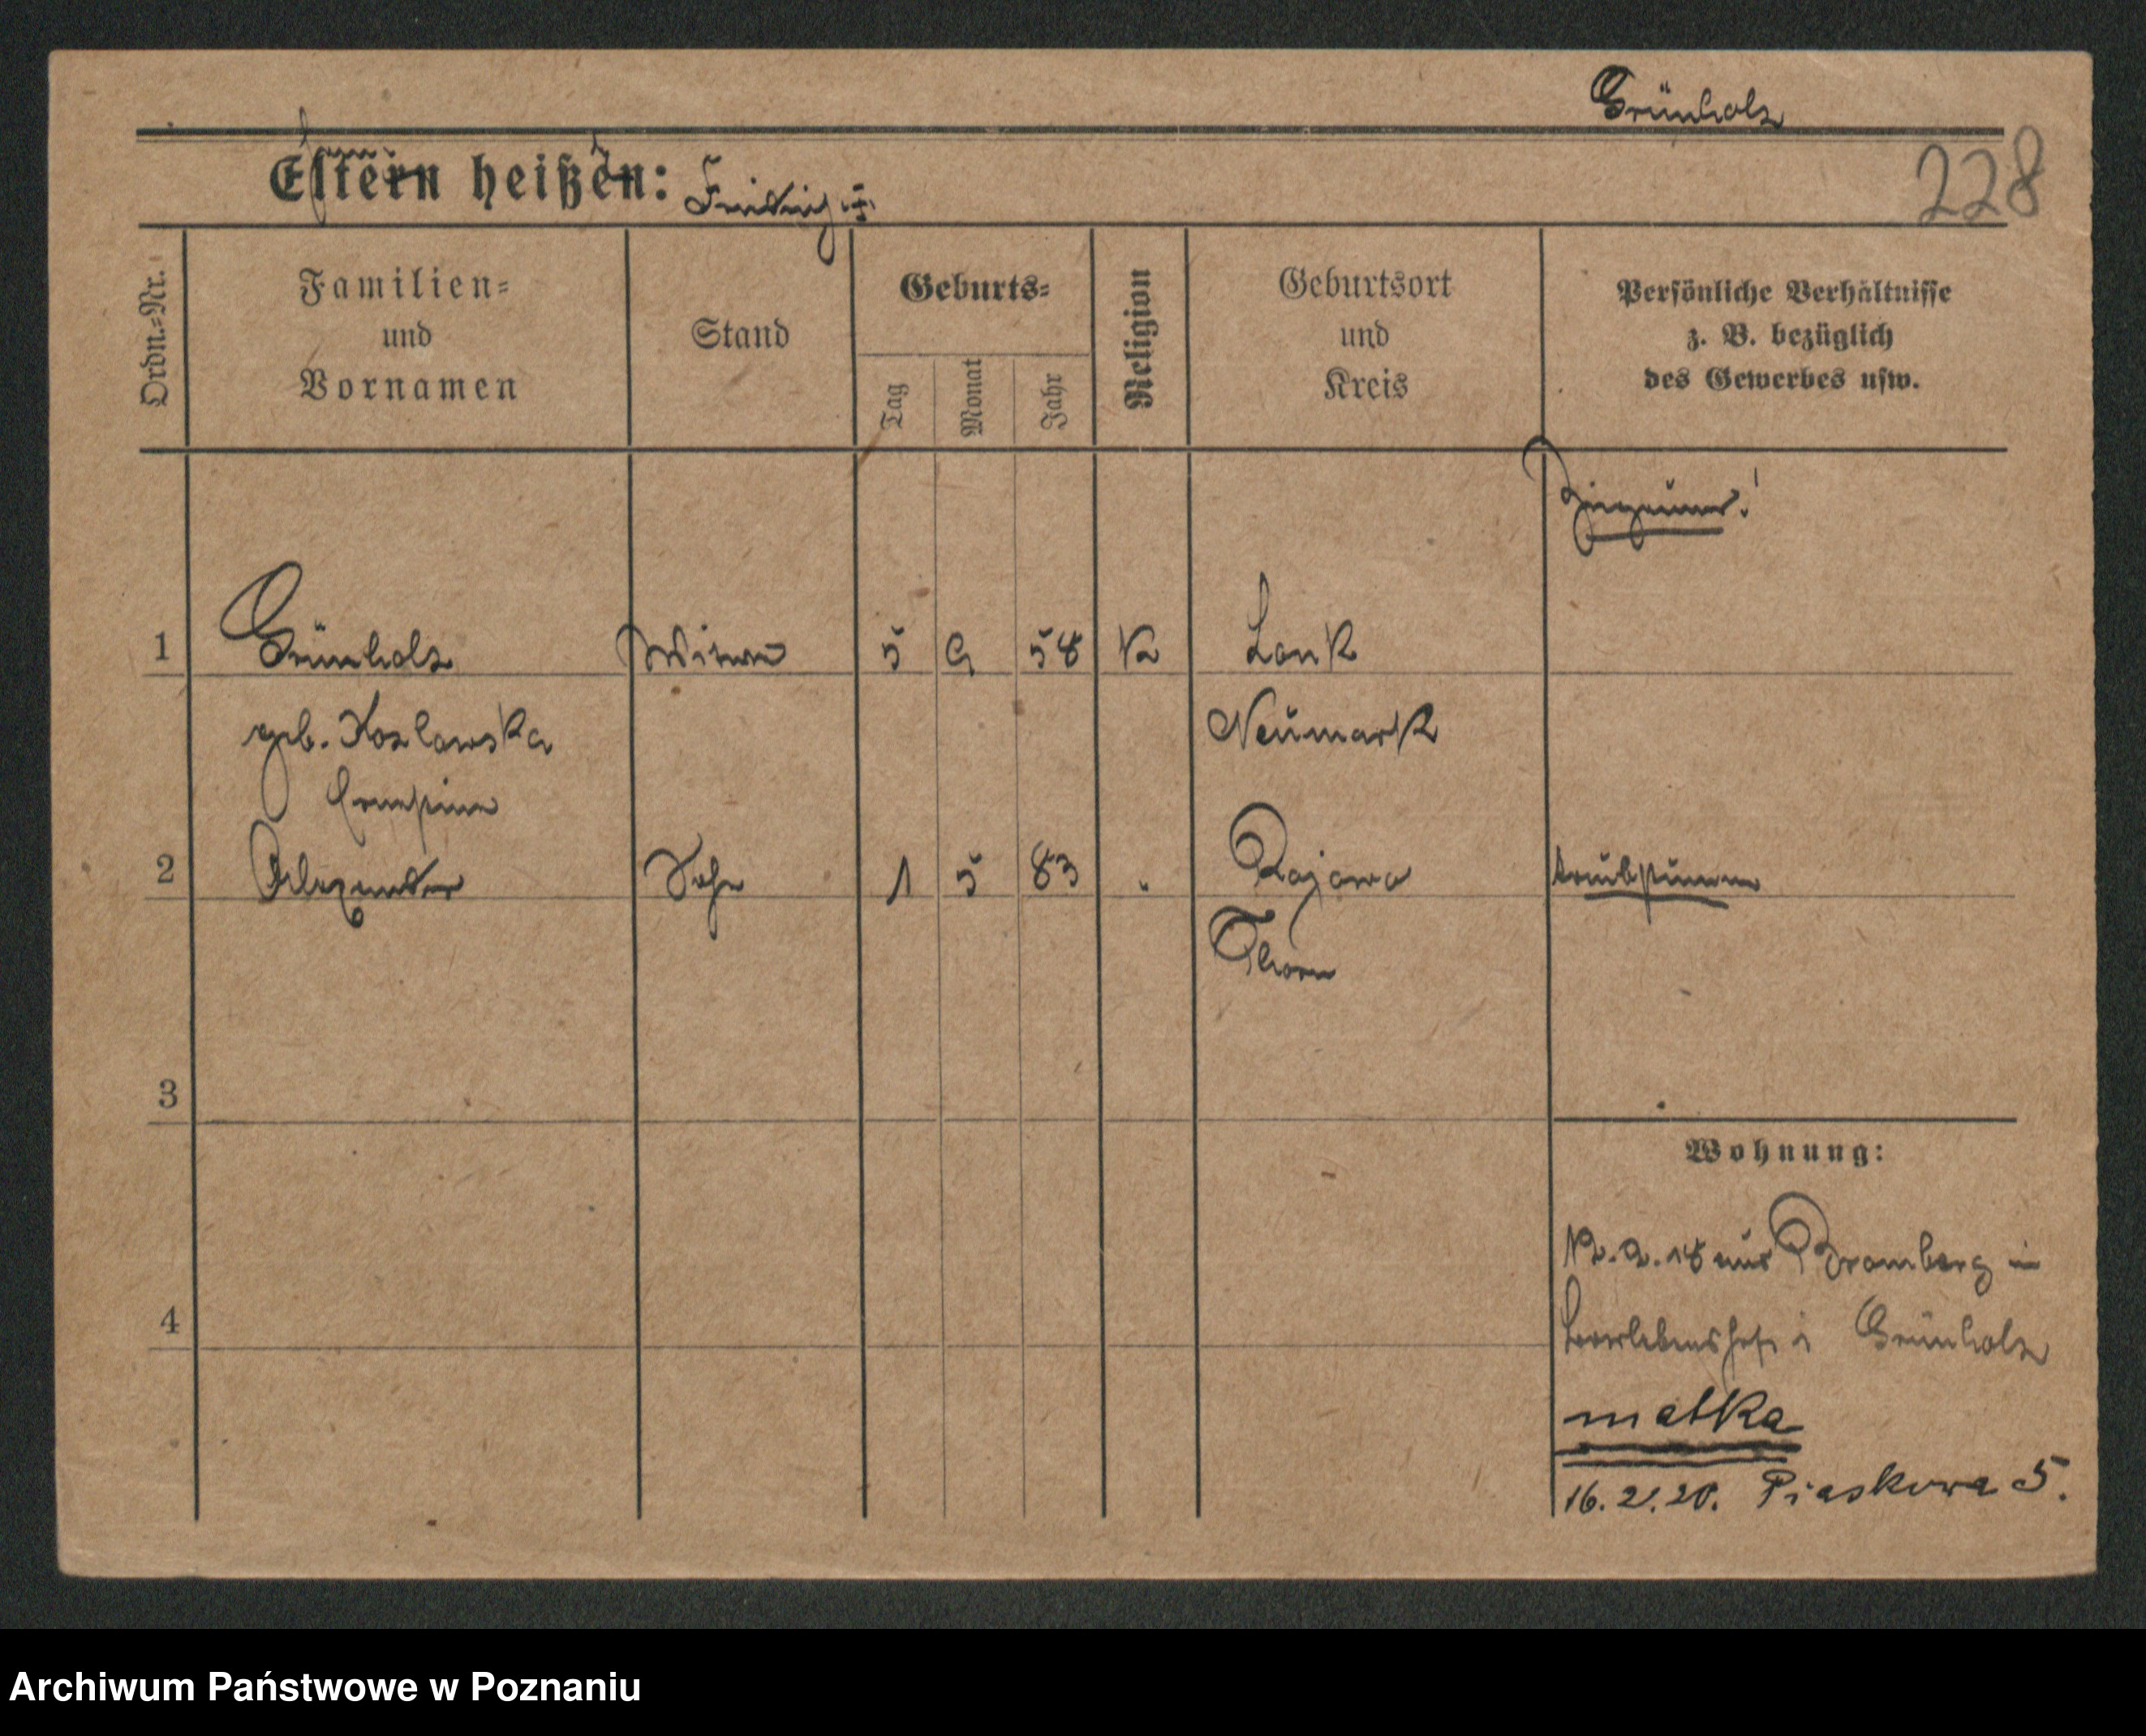 Grünholz
228
Eltern heißen:
Ordn.-Nr.
Familien-
und
Vornamen
Stand
Geburts-
Tag
Monat
Jahr
Religion
Geburtsort
und
Kreis
Persönliche Verhältnisse
z. B. bezüglich
des Gewerbes usw.
1 Grünholz Witwe 5 9 58 K Lonk
geb. Koslowska Neumark
2 Alexander Sohn 1 5 83 " taubstumm
Thorn
3
Wohnung:
12.2.18 aus Bromberg in
4 Grünholz
matka
16.2.20. Piaskowa 5.
Archiwum Państwowe w Poznaniu